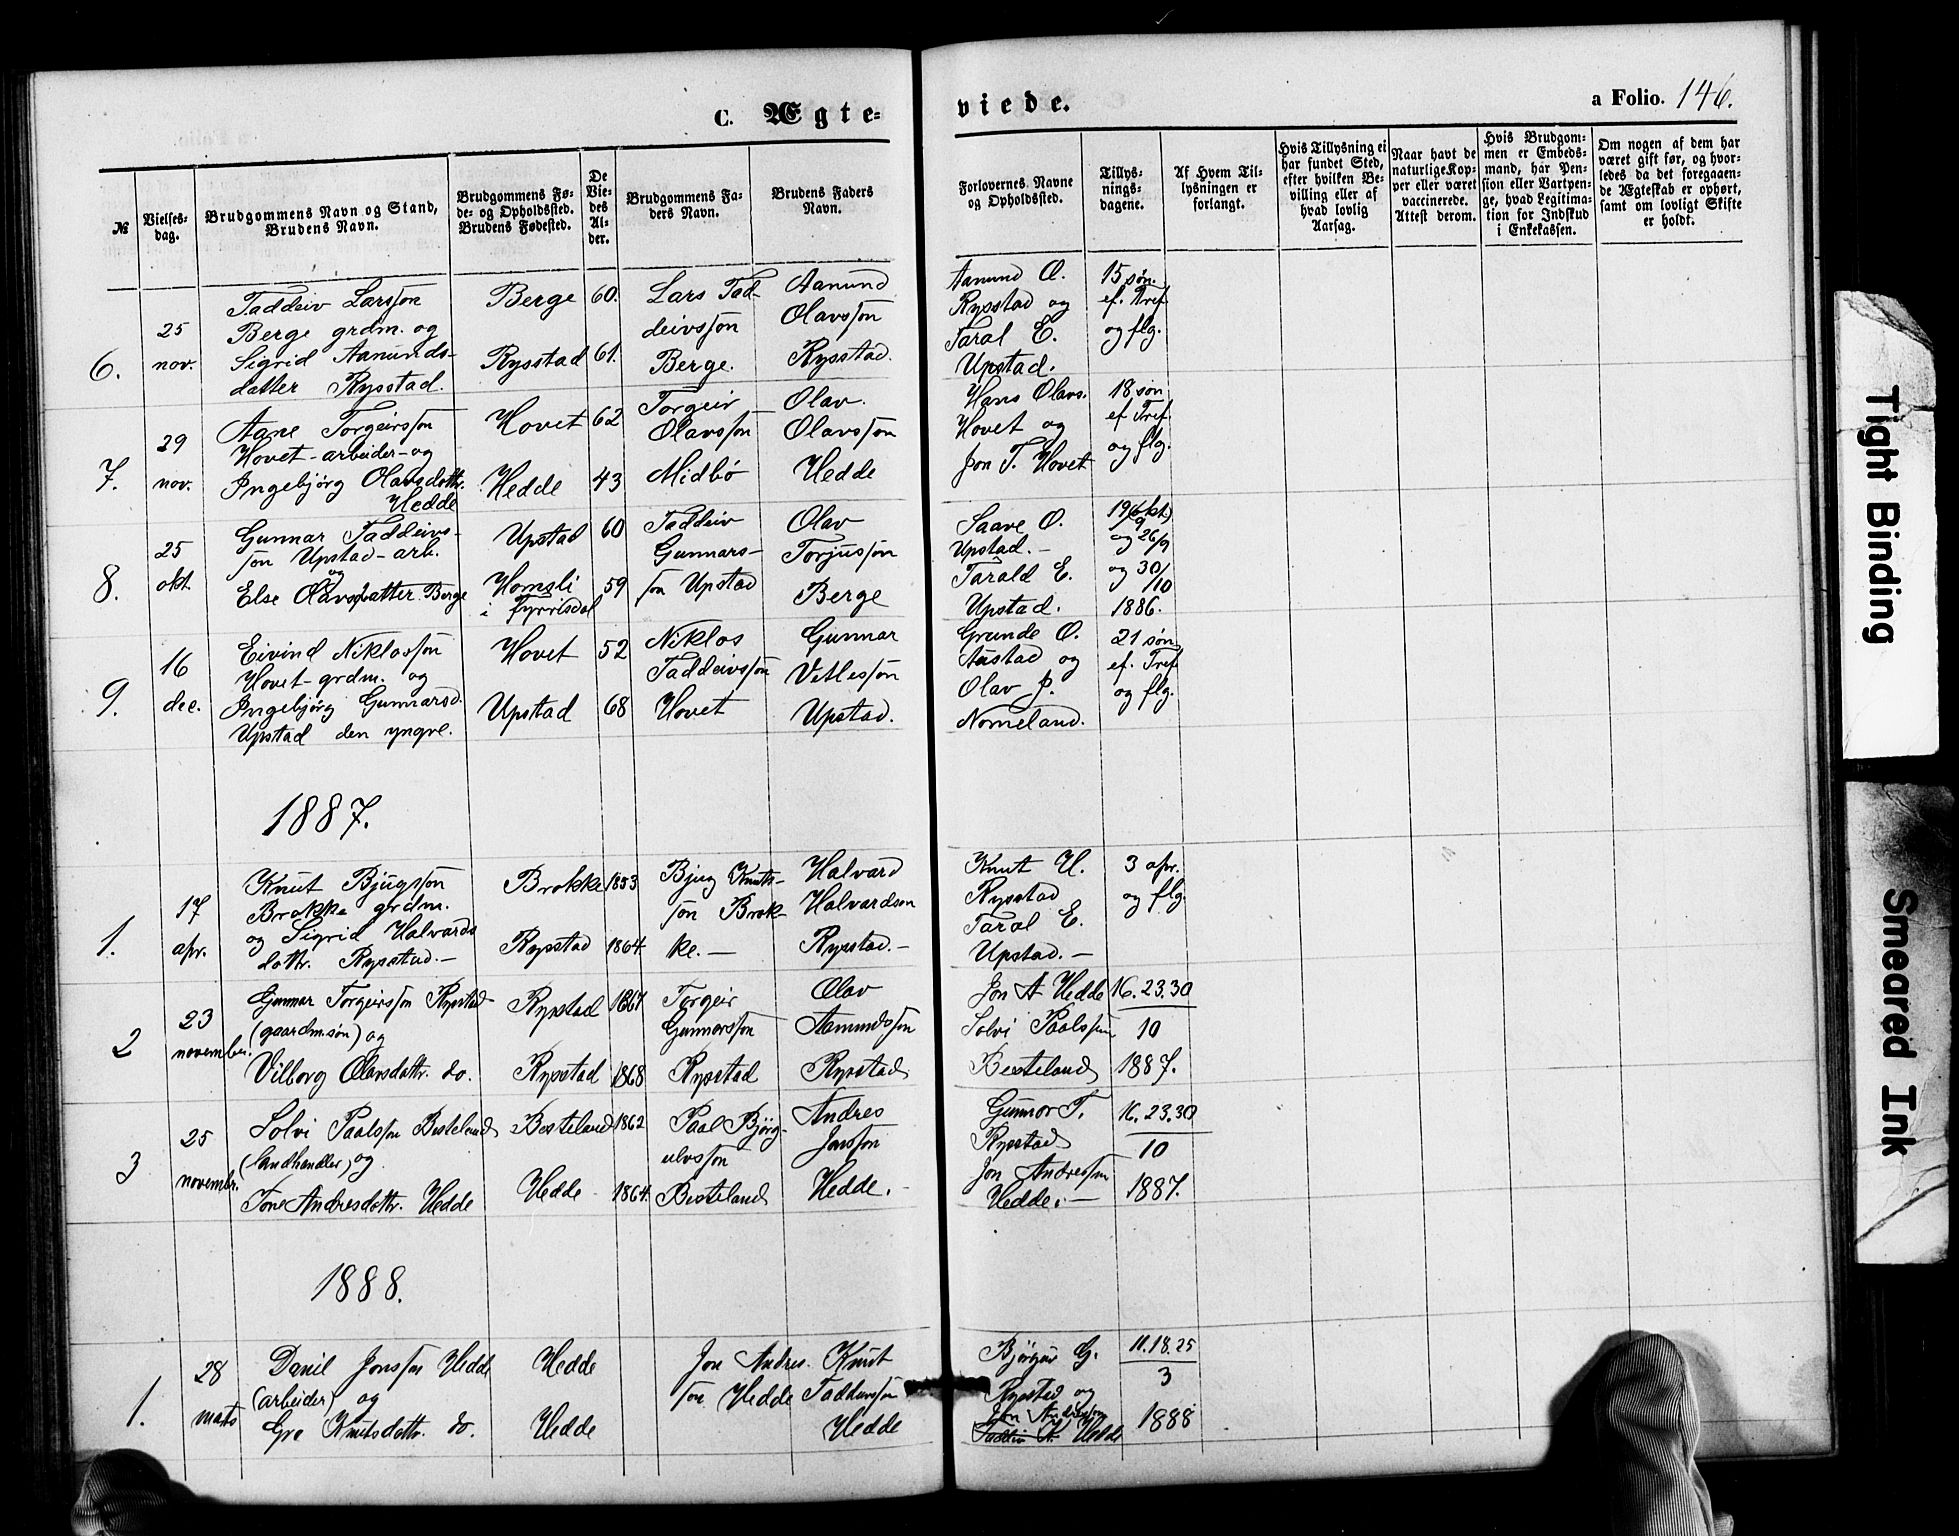 C. Ægte=
viede.
a Folio. 146.
№
Vielses-
dag.
Brudgommens Navn og Stand,
Brudens Navn.
Brudgommens Fø-
de- og Opholdssted.
Brudens Fødested.
De
Vie-
des
Al-
der.
Brudgommens Fa-
ders Navn.
Brudens Faders
Navn.
Forlovernes Navne
og Opholdssted.
Tillys-
nings-
dagene.
Af Hvem Til-
lysningen er
forlangt.
Hvis Tillysning ei
har fundet Sted,
efter hvilken Be-
villing eller af
hvad lovlig
Aarsag.
Naar havt de
naturlige Kop-
per eller været
vaccinerede.
Attest derom.
Hvis Brudgom-
men er Embeds-
mand, har Pen-
sion eller Vartpen-
ge, hvad Legitima-
tion for Indskud
i Enkekassen.
Om nogen af dem har
været gift før, og hvor-
ledes da det foregaaen-
de Ægteskab er ophørt,
samt om lovligt Skifte
er holdt.
6.
25
nov.
Taddeiv Larsson
Berge grdm. og
Sigrid Aanunds-
datter Rysstad.
Berge
Rysstad
60.
61.
Lars Tad-
deivsson
Berge.
Aanund
Olavsson
Rysstad.
Aanund O.
Rysstad og
Taral E.
Upstad.
15 søn.
ef. Tref
og flg.
7.
29
nov.
Aane Torgeirsson
Hovet - arbeider - og
Ingebjørg Olavsdottr.
Hedde
Hovet
Hedde
62
43
Torgeir
Olavsson
Midbø
Olav.
Olavsson
Hedde
Hans Olavs.
Hovet og
Jon T. Hovet
18 søn
ef Tref.
og flg.
8.
25
okt.
Gunnar Taddeivs-
son Upstad - arb.
og
Else Olavsdatter Berge
Upstad
Homsli
i Fyrrisdal
60
59
Taddeiv
Gunnars-
son Upstad
Olav
Torjusson
Berge
Saave O.
Upstad. -
Tarald E.
Upstad.
19/9
og 26/9
og 30/
10
1886.
9.
16
dec.
Eivind Niklosson
Hovet - grdm. og
Ingebjørg Gunnarsd.
Upstad den yngre.
Hovet
Upstad
52
68
Niklos
Taddeivsson
Hovet
Gunnar
Vetlesson
Upstad.
Grunde O.
Austad og
Olav P.
Nomeland.
21 søn
ef. Tref
og flg.
1887.
1.
17
apr.
Knut Bjugsson
Brokke grdm.
og Sigrid Halvards
dottr. Rysstad. -
Brokke
Rysstad
1853
1864.
Bjug Knuts-
son Brok-
ke. -
Halvard
Halvardson
Rysstad. -
Knut H.
Rysstad
Taral E.
Upstad. -
3 apr.
og flg.
2
23
november.
Gunnar Torgeirsson Rysstad
(gaardm.søn) og
Vilborg Olavsdottr. do.
Rysstad
Rysstad
1867
1868
Torgeir
Gunnarsson
Rysstad
Olav
Aamundsson
Rysstad
Jon A Hedde
Solvi Paalsson
Besteland
16. 23. 30
10
1887.
3
25
novembr.
Solvi Paalsson Besteland
(landhandler) og
Tone Andresdottr. Hedde
Besteland
Hedde
1862
1864.
Paal Bjørg-
ulvsson
Besteland
Andres
Jonsson
Hedde.
Gunnar T.
Rysstad
Jon Andresson
Hedde. -
16. 23. 30
10
1887.
1888.
1.
28
marts
Danil Jonsson Hedde
(arbeider) og
Gro Knutsdottr. do.
Hedde
Hedde
Jon Andres-
son Hedde
Knut
Taddeivsson
Hedde
Bjørgu G.
Rysstad og
Jon Andresson
Taddeiv K. Hedde
11. 18. 25
3
1888
Tight Binding
Smeared Ink